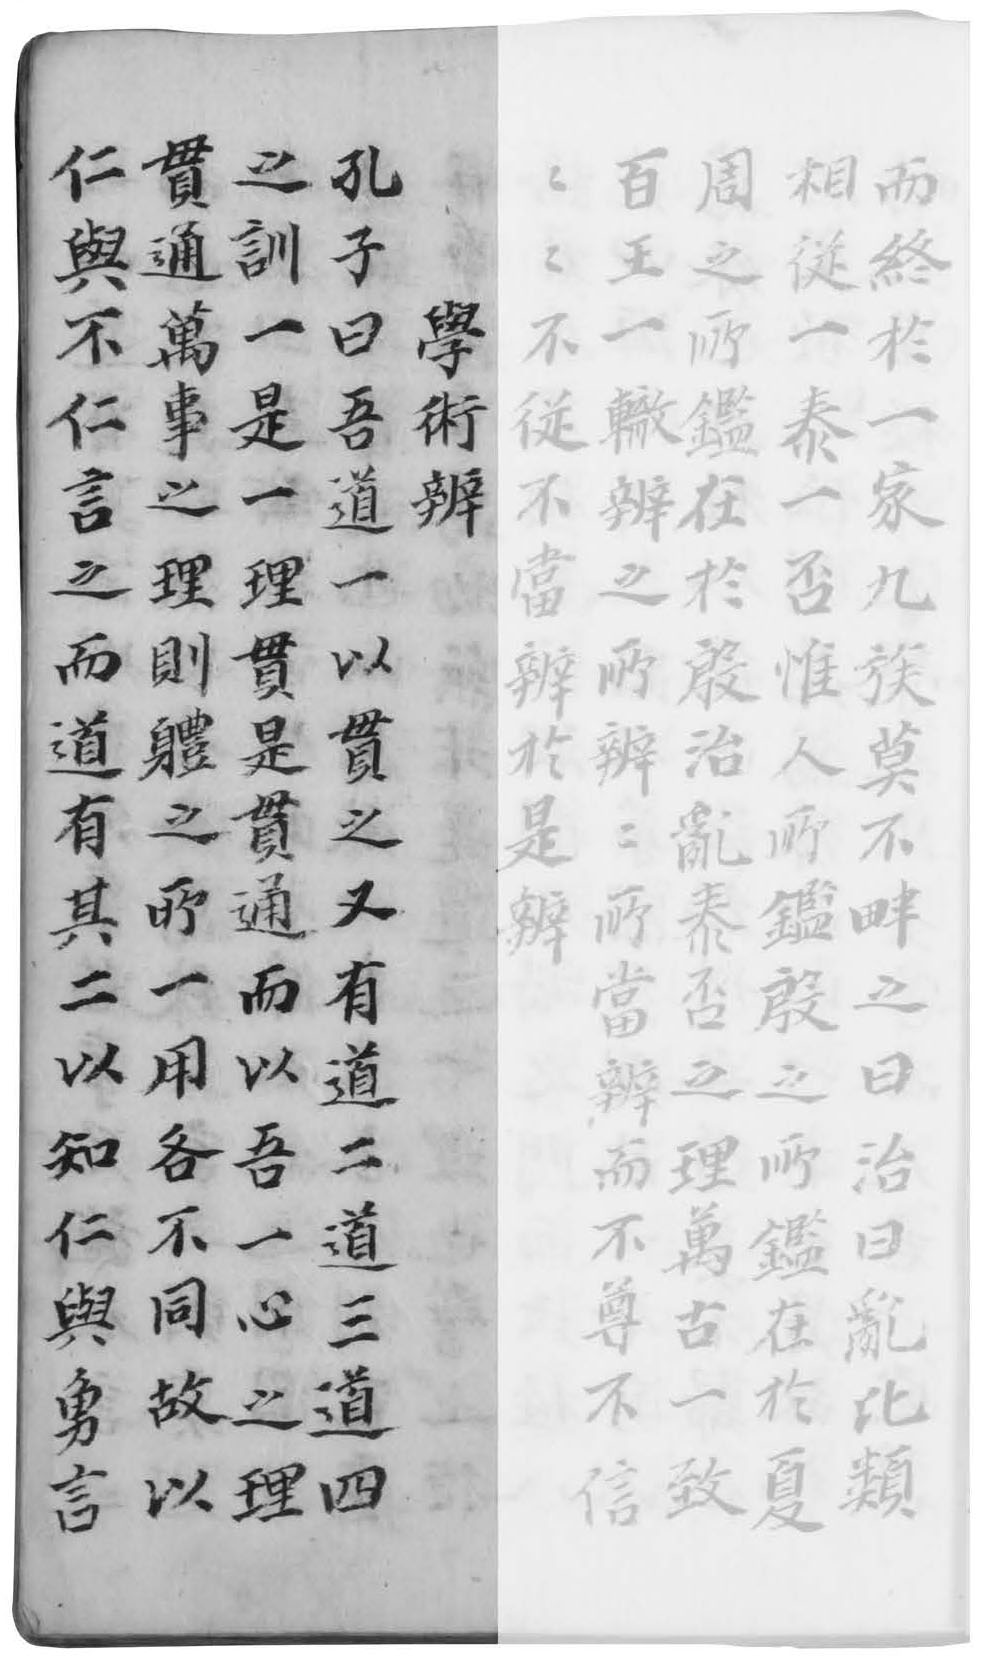 而終於一家九族莫不畔之曰治曰亂比類
相從一泰一否惟人所鑑殷之所鑑在於夏
周之所鑑在於殷治亂泰否之理萬古一致
百王一轍辨之所辨〻所當辨而不尊不信
〻〻不從不當辨於是辨
學術辨
孔子曰吾道一以貫之又有道二道三道四
之訓一是一理貫是貫通而以吾一心之理
貫通萬事之理則體之所一用各不同故以
仁與不仁言之而道有其二以知仁與勇言